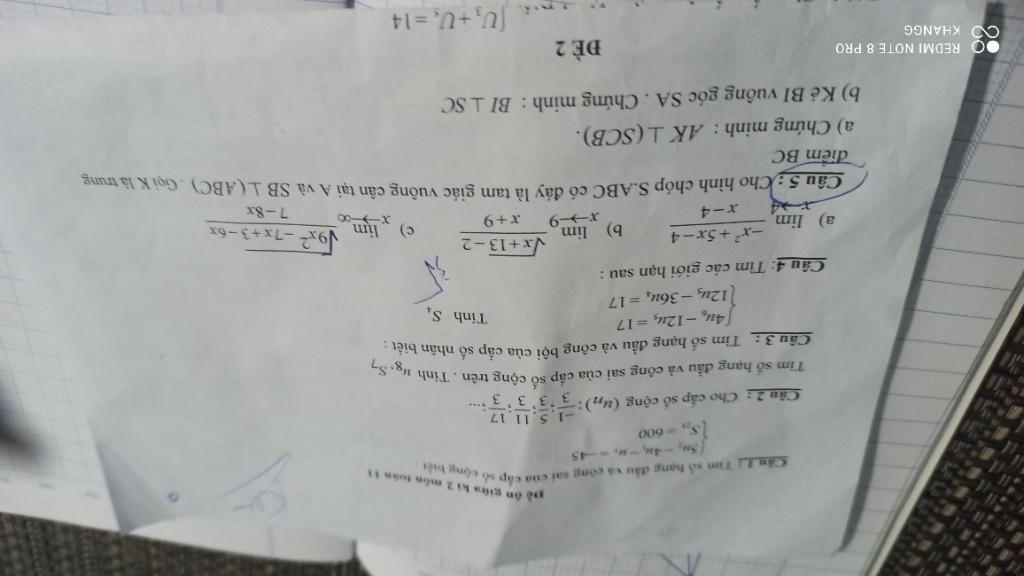 Đề ôn giữa kì 2 môn toán 11
Câu 1 : Tìm số hạng đầu và công sai của cấp số cộng biết :
= -45
= 600
Câu 2 : Cho cấp số cộng (uₙ): -1/3; 5/3; 11/3; 17/3; ...
Tìm số hạng đầu và công sai của cấp số cộng trên . Tính u₈, S₇
Câu 3 : Tìm số hạng đầu và công bội của cấp số nhân biết :
{4u₆ - 12u₅ = 17
{12u₅ - 36u₄ = 17
Tính S₄
Câu 4 : Tìm các giới hạn sau :
a) lim x→4 (-x² + 5x - 4)/(x - 4) b) lim x→9 (√(x+13) - 2)/(x + 9) c) lim x→∞ (√(9x² - 7x + 3) - 6x)/(7 - 8x)
Câu 5 : Cho hình chóp S.ABC có đáy là tam giác vuông cân tại A và SB ⊥ (ABC) . Gọi K là trung
điểm BC
a) Chứng minh : AK ⊥ (SCB).
b) Kẻ BI vuông góc SA . Chứng minh : BI ⊥ SC
ĐỀ 2
= 14
REDMI NOTE 8 PRO
KHANGG